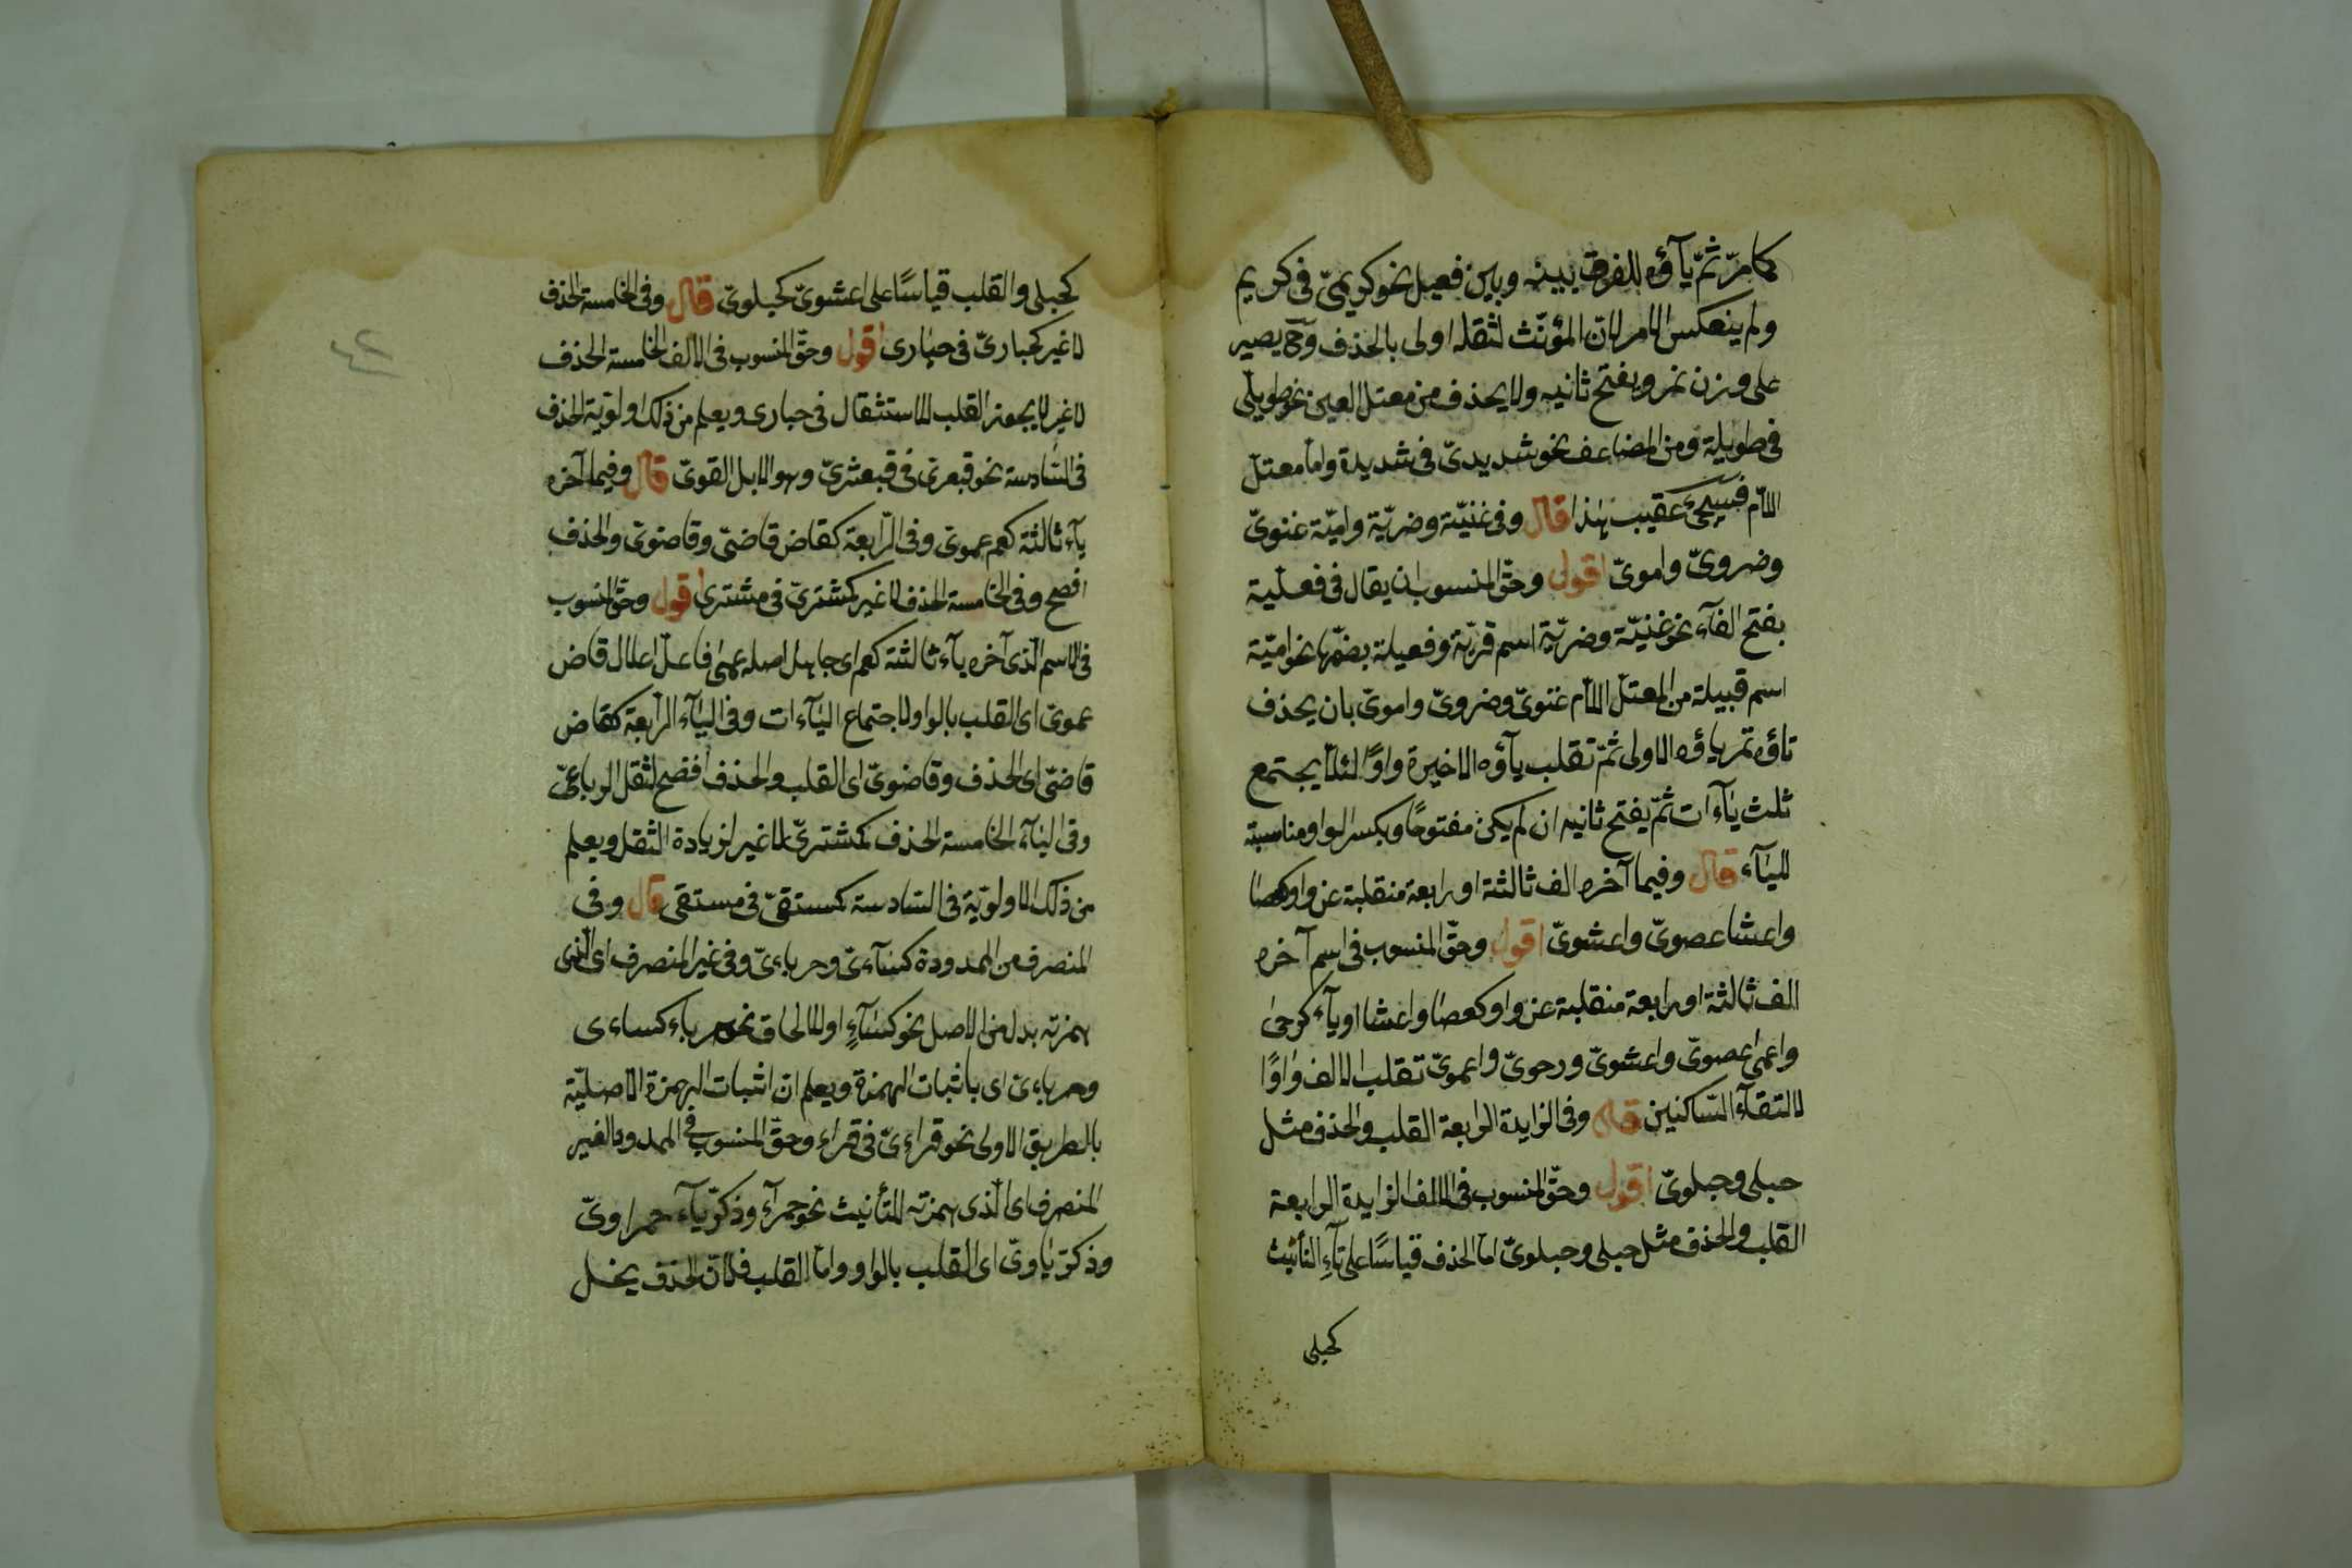 كمامرّ ثمّ ياؤه للفرق بينه وبين فعيل نحو كريمىّ فى كريم
ولم ينعكس الامر لانّ المؤنّث لثقله اولى بالحذف وح يصير
على وزن نمر ويفتح ثانيه ولا يحذف من معتل العين نحو طويلىّ
فى طويلة ومن المضاعف نحو شديدىّ فى شديدة وامّا معتلّ
اللاّم فسيجئ عقيب هذا قال وفى غنيّة وضريّة واميّة غنوىّ
وضروىّ واموىّ اقول وحقّ المنسوب ان يقال فى فعيلة
بفتح الفآء نحو غنيّة وضريّة اسم قرية وفعيلة بضمّها نحو اميّة
اسم قبيلة من المعتلّ اللاّم غنوىّ وضروىّ واموىّ بان يحذف
تاؤه ثم ياؤه الاولى ثمّ تقلب ياؤه الاخيرة واوًا لئلاّ يجتمع
ثلث ياءات ثمّ يفتح ثانيه ان لم يكن مفتوحًا ويكسر الواو مناسبة
للياء قال وفيما آخره الف ثالثة او رابعة منقلبة عن واو كعصا
واعشا عصوىّ واعشوىّ اقول وحقّ المنسوب فى اسم آخره
الف ثالثة او رابعة منقلبة عن واو كعصا واعشا او ياء كرحى
واعمى عصوىّ واعشوىّ ورحوىّ واعموىّ تقلب الالف واوًا
لالتقاء السّاكنين قال وفى الزايدة الرابعة القلب والحذف مثل
حبلى وحبلوىّ اقول وحقّ المنسوب فى الالف الزايدة الرابعة
القلب والحذف مثل حبلى وحبلوىّ امّا الحذف قياسًا على تآء التأنيث
كحبلى
كحبلى والقلب قياسًا على اعشوىّ كحبلوىّ قال وفى الخامسة الحذف
لا غير كحبارىّ فى حبارى اقول وحقّ المنسوب فى الالف الخامسة الحذف
لا غير لا يجوز القلب للاستثقال فى حبارى ويعلم من ذلك اولويّة الحذف
فى السّادسة نحو قبعثرىّ فى قبعثرى وهو الابل القوىّ قال وفيما آخره
ياء ثالثة كعم عموىّ وفى الرّابعة كقاض قاضىّ وقاضوىّ والحذف
افصح وفى الخامسة الحذف لا غير كمشترىّ فى مشترى اقول وحقّ المنسوب
فى الاسم الّذى آخره يآء ثالثة كعم اى جاهل اصله عمى فاعلّ اعلال قاض
عموىّ اى القلب بالواو لاجتماع الياءات وفى الياء الرّابعة كقاض
قاضىّ اى الحذف وقاضوىّ اى القلب والحذف افصح لثقل الرباعىّ
وفى اليآء الخامسة الحذف كمشترىّ لا غير لزيادة الثقل ويعلم
من ذلك الاولويّة فى السّادسة كمستقىّ فى مستقى قال وفى
المنصرف من الممدودة كسآءىّ وحرباءىّ وفى غير المنصرف اى الّذى
همزته بدل من الاصل نحو كسآءٍ او للالحاق نحو حرباء كساءى
وحرباءىّ اى باثبات الهمزة ويعلم انّ اثبات الهمزة الاصليّة
بالطريق الاولى نحو قراءىّ فى قراء وحقّ المنسوب فى الممدود الغير
المنصرف اى الّذى همزته للتأنيث نحو حمرآء وذكريّآء حمراوىّ
وذكريّاوىّ اى القلب بالواو وامّا القلب فلانّ الحذف يخلّ